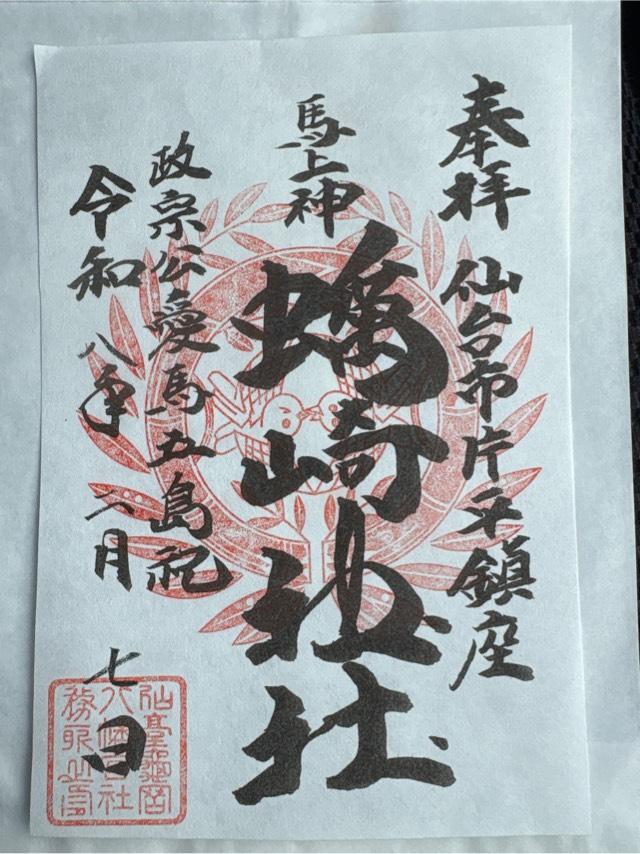 奉拝 仙台市片平鎮座
馬上神
蛎崎神社
政宗公愛馬五島祀
令和八年二月七日
仙臺龜岡
八幡宮社
務所之印